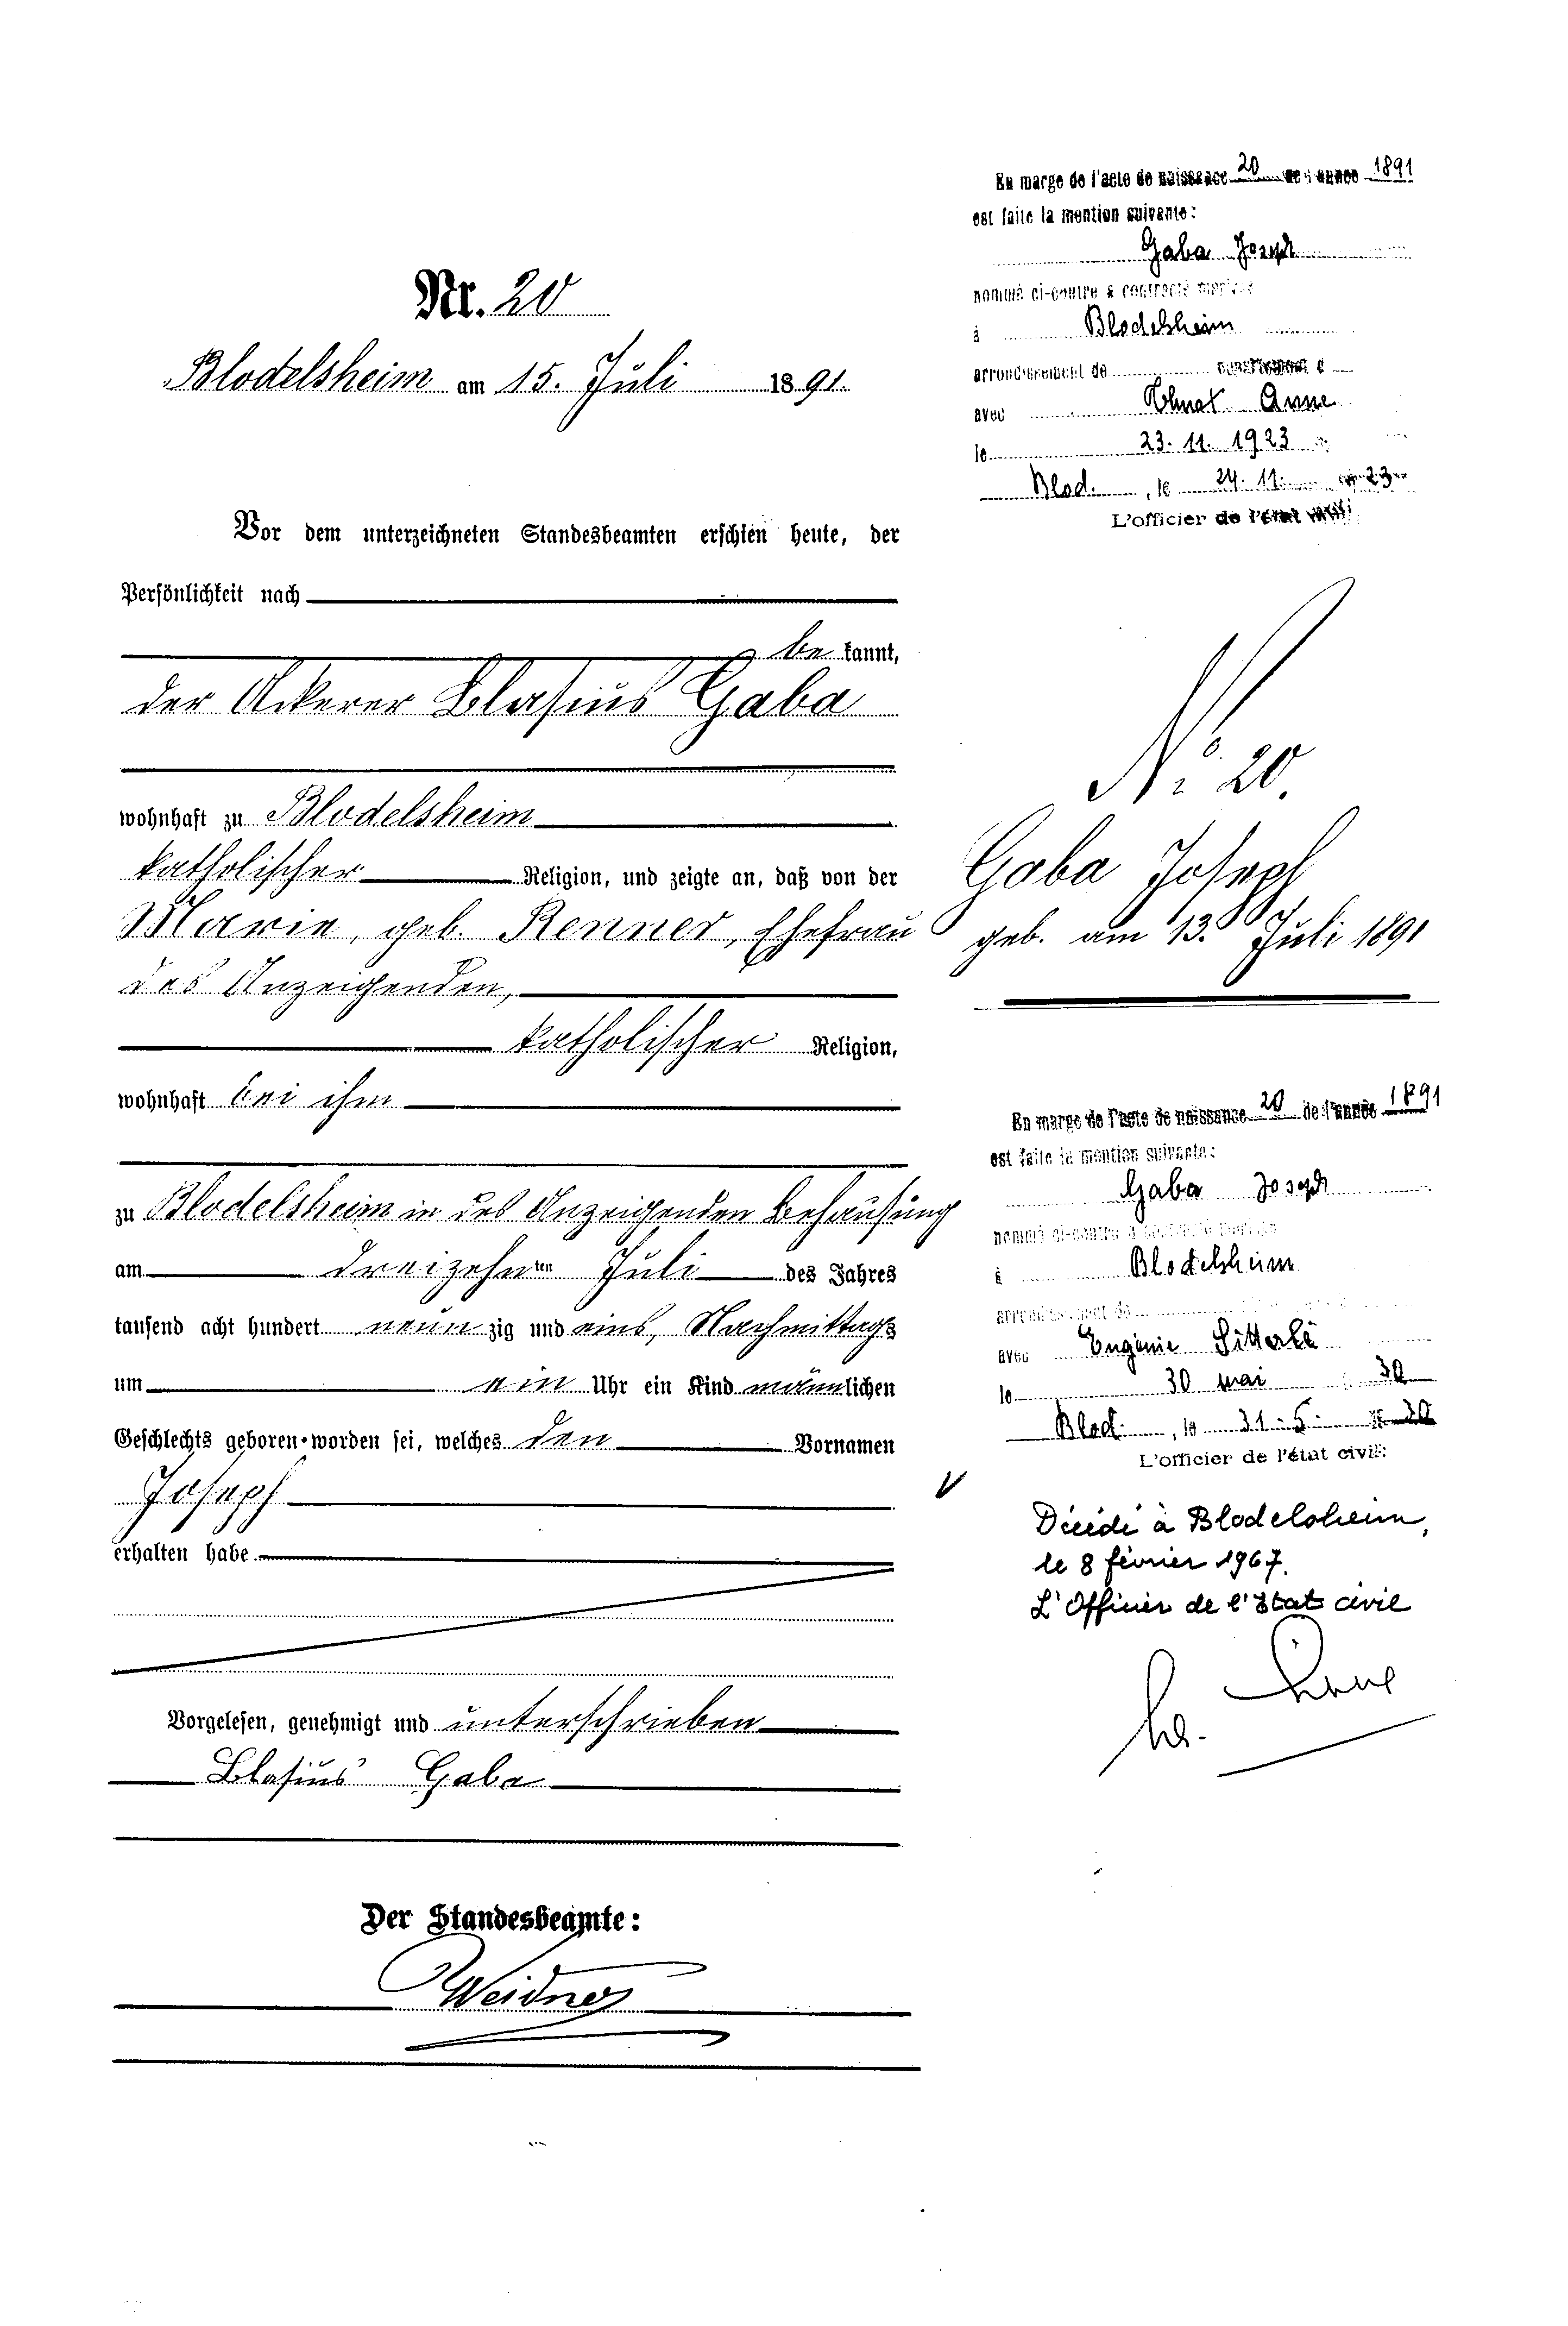 Nr. 20
Blodelsheim am 15. Juli 1891.
Vor dem unterzeichneten Standesbeamten erschien heute, der
Persönlichkeit nach
be kannt,
der Ackerer Blasius Gaba
wohnhaft zu Blodelsheim
katholischer Religion, und zeigte an, daß von der
Marie, geb. Renner, Ehefrau
des Anzeigenden,
katholischer Religion,
wohnhaft bei ihm
zu Blodelsheim in des Anzeigenden Behausung
am dreizehnten Juli des Jahres
tausend acht hundert neun zig und eins, Nachmittags
um ein Uhr ein Kind männlichen
Geschlechts geboren worden sei, welches den Vornamen
Joseph
erhalten habe.
Vorgelesen, genehmigt und unterschrieben
Blasius Gaba
Der Standesbeamte:
Weidner
En marge de l'acte de naissance 20 de l'année 1891
est faite la mention suivante:
Gaba Joseph
nommé ci-contre a contracté mariage
à Blodelsheim
arrondissement de
avec Anne
le 23. 11. 1923
Blod. , le 24. 11. 23
L'officier de l'état civil:
No 20.
Gaba Joseph
geb. am 13. Juli 1891
En marge de l'acte de naissance 20 de l'année 1891
est faite la mention suivante:
Gaba Joseph
nommé ci-contre a contracté mariage
à Blodelsheim
arrondissement de
avec Eugénie Sitterlé
le 30 mai 30
Blod. , le 31. 5. 30
L'officier de l'état civil:
Décédé à Blodelsheim,
le 8 février 1967.
L'Officier de l'Etat civil